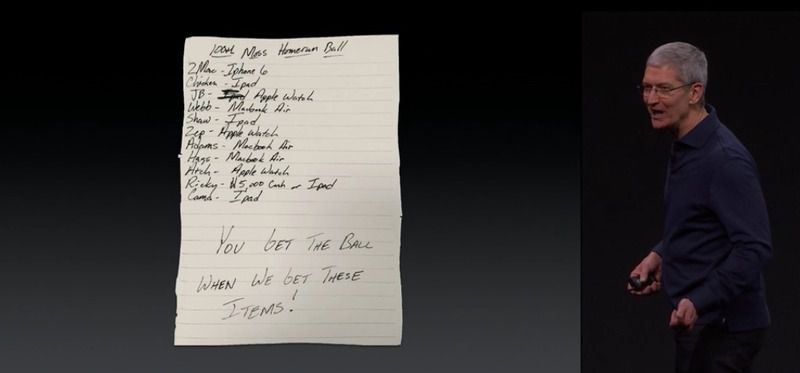 100th Moss Homerun Ball
ZMac - Iphone 6
Chicken - Ipad
JB - Apple Watch
Webb - Macbook Air
Shaw - Ipad
Zep - Apple Watch
Adams - Macbook Air
Hags - Macbook Air
Atch - Apple Watch
Ricky - $5,000 Cash or Ipad
Cama - Ipad
YOU GET THE BALL
WHEN WE GET THESE
ITEMS!